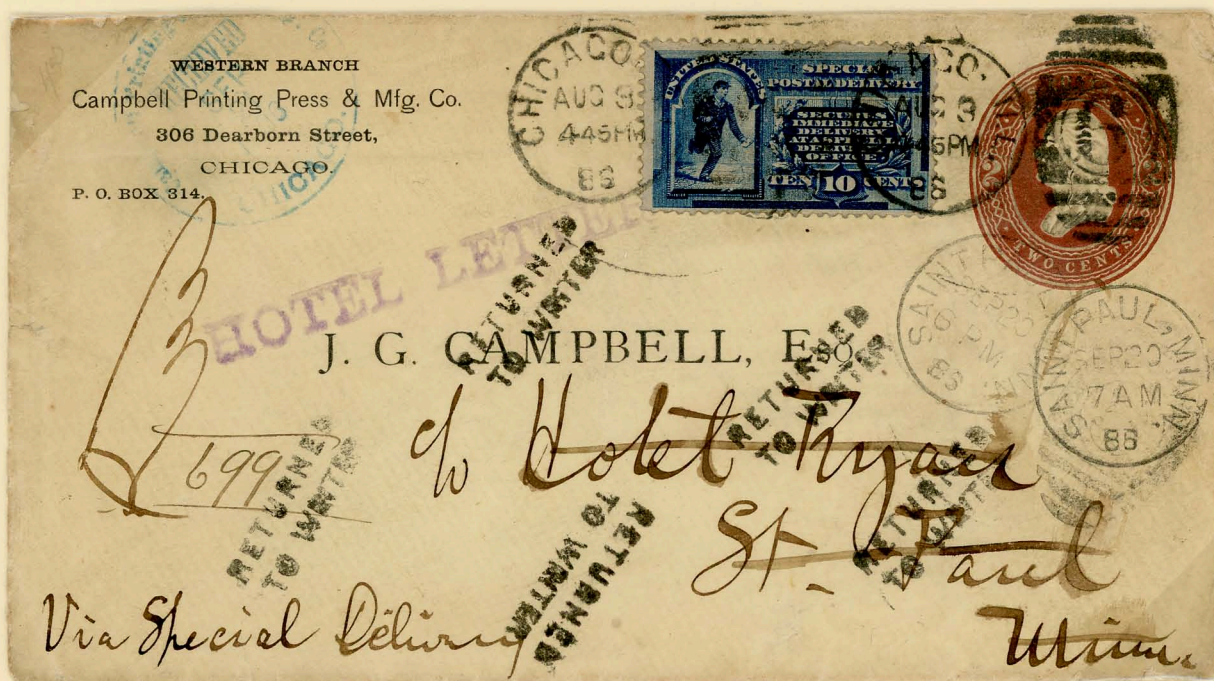 WESTERN BRANCH
Campbell Printing Press & Mfg. Co.
306 Dearborn Street,
CHICAGO.
P. O. BOX 314.
CHICAGO
CHICAGO.
AUG 3
4-45PM
86
UNITED STATES
SPECIAL
POSTAL DELIVERY
SECURES
IMMEDIATE
DELIVERY
AT A SPECIAL
DELIVERY
OFFICE
TEN 10 CENTS
AUG 3
4-45PM
86
TWO CENTS
HOTEL LETTER
RETURNED
TO WRITER
J. G. CAMPBELL, Esq.
RETURNED
TO WRITER
SAINT
SEP 20
6 PM
86
SAINT PAUL, MINN.
SEP 20
7 AM
86
c/o Hotel Ryan
699
RETURNED
TO WRITER
RETURNED
TO WRITER
RETURNED
TO WRITER
St. Paul
Minn.
Via Special Delivery